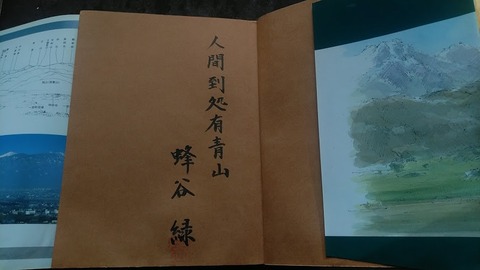 人間到処有青山
蜂谷 緑